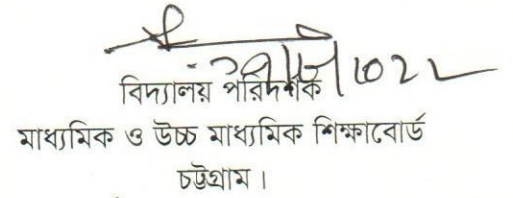 বিদ্যালয় পরিদর্শক
মাধ্যমিক ও উচ্চ মাধ্যমিক শিক্ষাবোর্ড
চট্টগ্রাম।